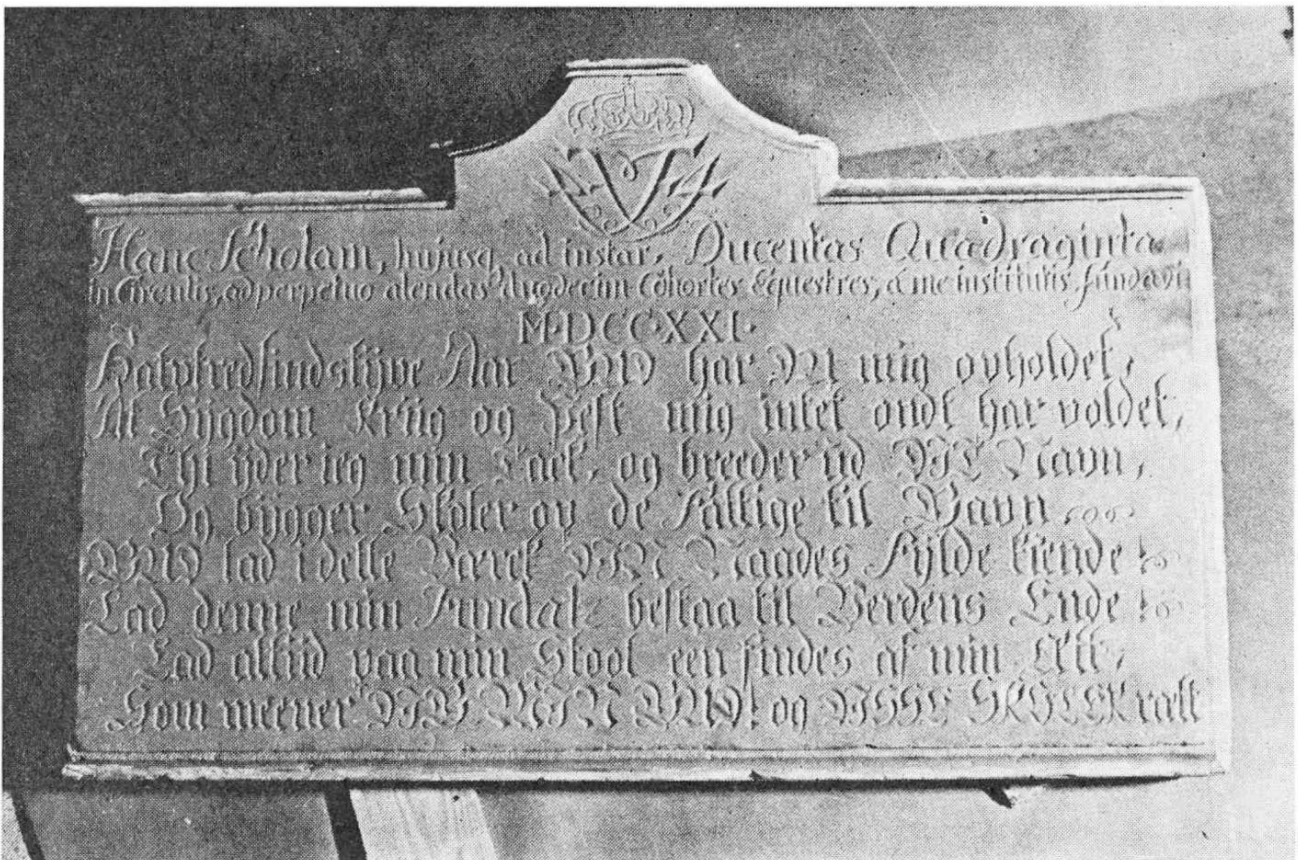 Hanc Scholam, hujusq ad instar, Ducentas Quadraginta
in Circulis, ad perpetuo alendas duodecim Cohortes Equestres, á me institutis, fundavi
M·DCC·XXI·
Halvtredsindstÿve Aar GUD har DU mig opholdet,
At Sÿgdom Kriig og Pest mig intet ondt har voldet,
Thi ÿder ieg min Tack, og breeder ud DIT Navn,
Og bÿgger Skoler op de Fattige til Gavn
GUD lad i dette Værck DIN Naades Fÿlde kiende!
Lad denne min Fundatz bestaa til Verdens Ende!
Lad altiid paa min Stool een findes af min Ætt,
Som meener DIG MIN GUD! og DISSE SKOLER rætt